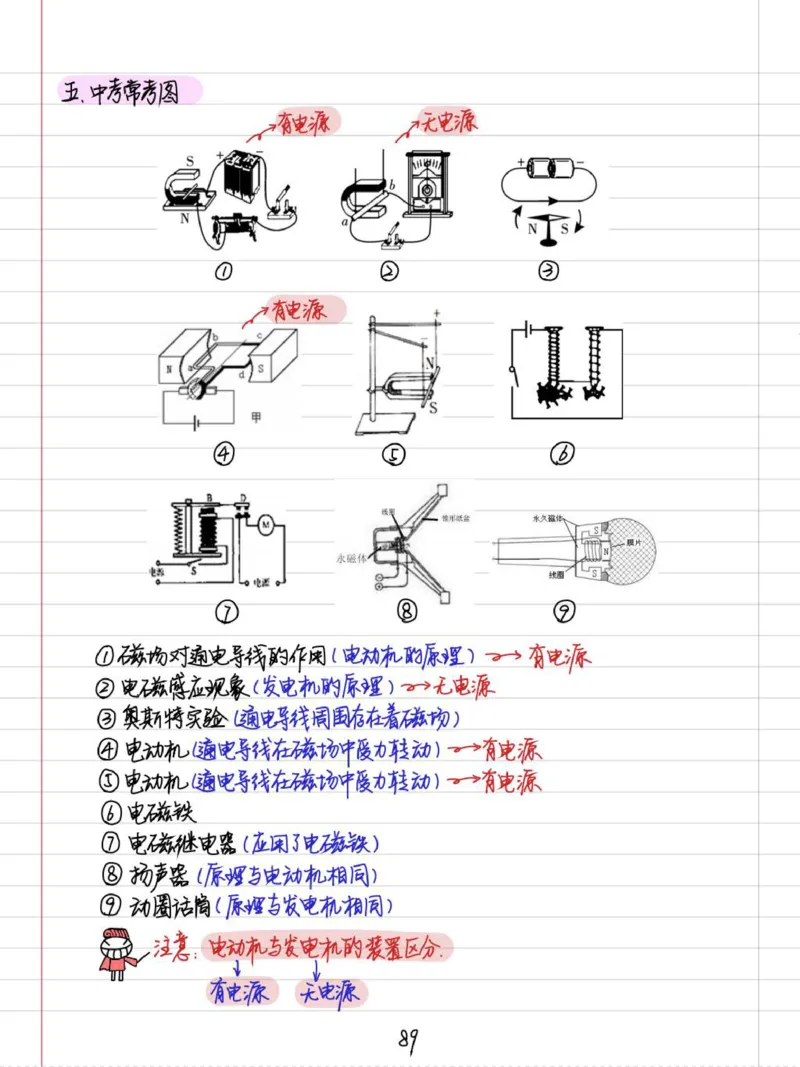 五.中考常考图
有电源
无电源
S
+ -
N
b
a
+ -
N S
①
②
③
有电源
b c
N a d S
甲
+
-
N
S
④
⑤
⑥
B D
M
S
电源
电源
线圈
锥形纸盆
永磁体
永久磁体
S
N
膜片
线圈
S
⑦
⑧
⑨
①磁场对通电导线的作用(电动机的原理)→有电源
②电磁感应现象(发电机的原理)→无电源
③奥斯特实验(通电导线周围存在着磁场)
④电动机(通电导线在磁场中受力转动)→有电源
⑤电动机(通电导线在磁场中受力转动)→有电源
⑥电磁铁
⑦电磁继电器(应用了电磁铁)
⑧扬声器(原理与电动机相同)
⑨动圈话筒(原理与发电机相同)
注意:电动机与发电机的装置区分.
有电源 无电源
89